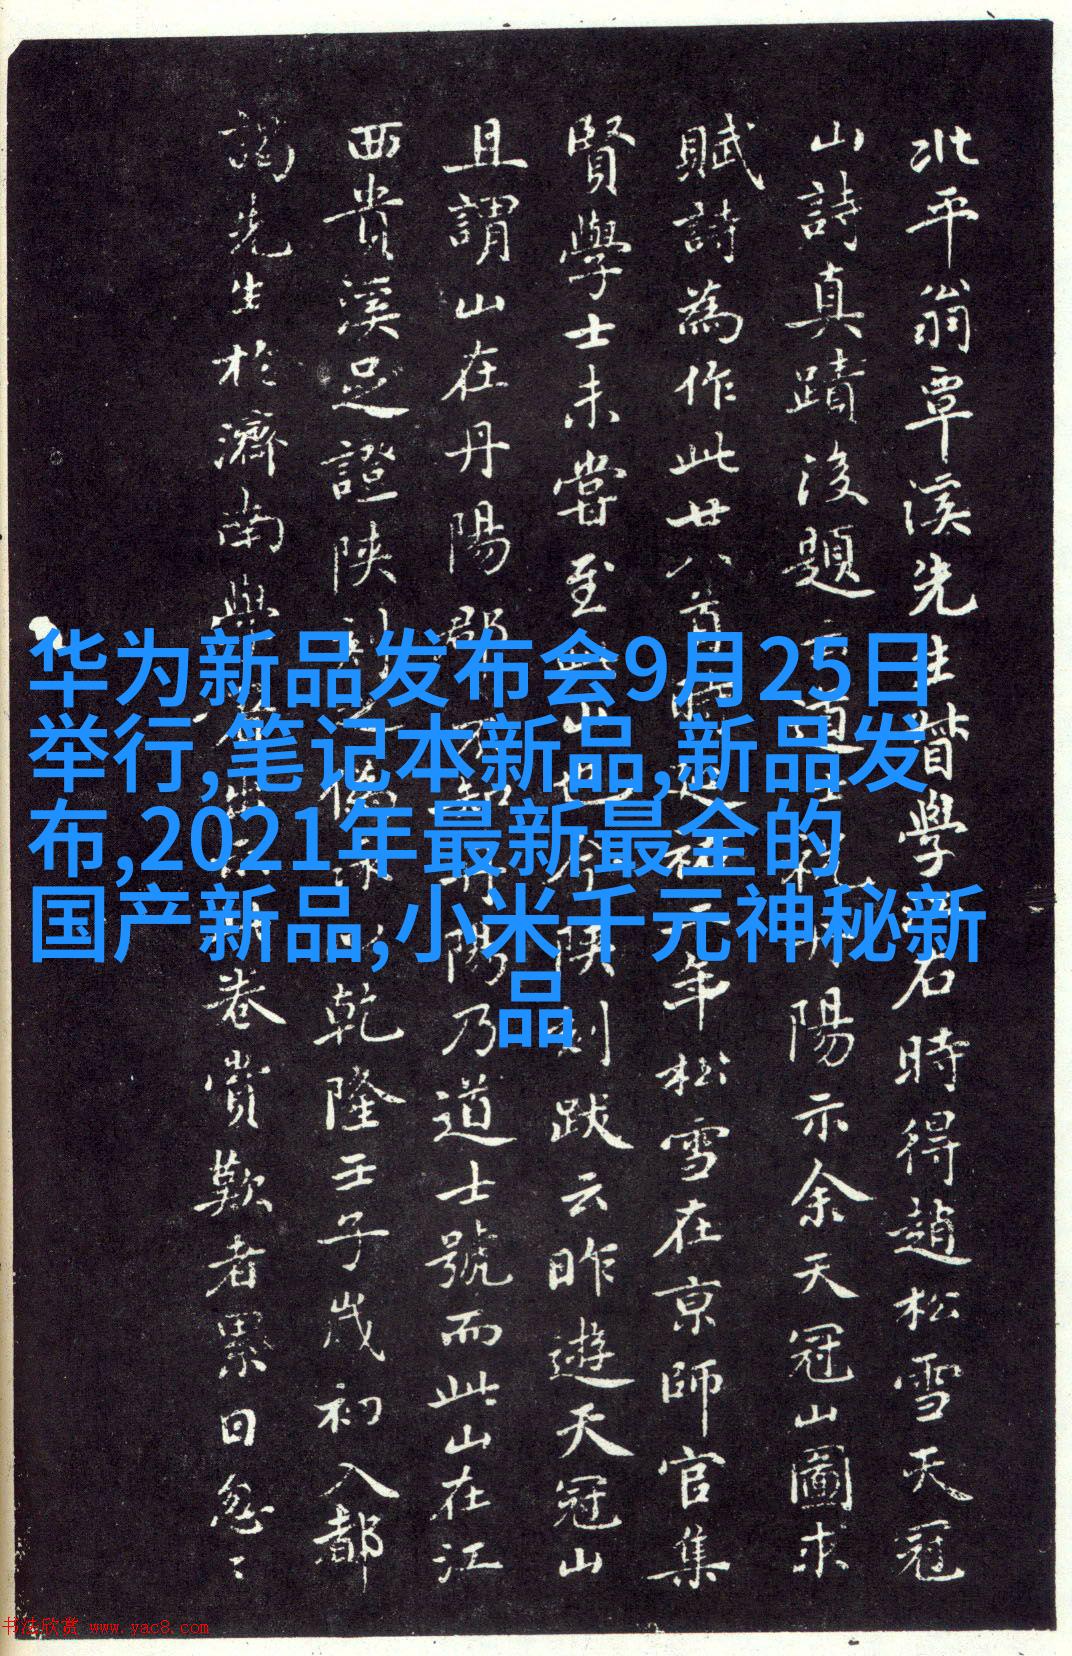 北平翁覃溪先生督學右時得趙松雪天冠
山詩真蹟後題云道士祝丹陽示余天冠山圖求
賦詩為作此廿八首延祐二年松雪在京師官集
賢學士未嘗至此山也陝刻跋云昨遊天冠山
且謂山在丹陽郡不知丹陽乃道士號而此山在江
西貴溪足證陝刻之偽乾隆壬子歲初入都
謁先生於濟南學卷賞歎者累日忽〻
华为新品发布会9月25日
举行,笔记本新品,新品发
布,2021年最新最全的
国产新品,小米千元神秘新
品
书法欣赏 www.yac8.com